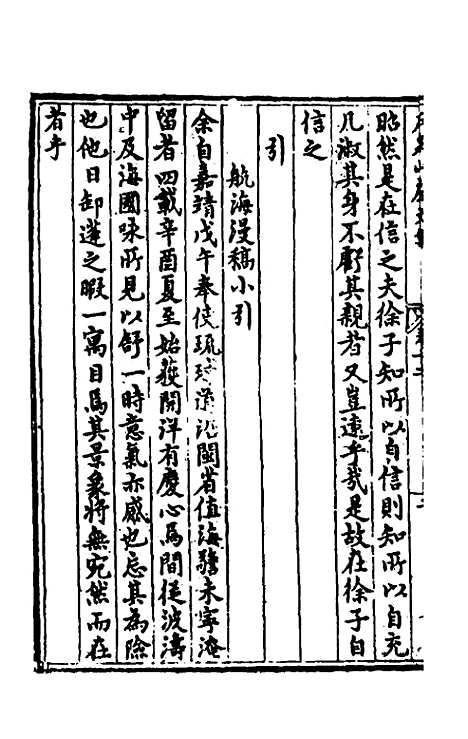 昭然是在信之夫徐子知所以自信則知所以自充
凡淑其身不虧其親者又豈遠乎哉是故在徐子自
信之
引
航海漫稿小引
余自嘉靖戊午奉使琉球藻沿閩省值海氛未寧淹
留者四載辛酉夏至始獲開洋有慶心焉間從波濤
中及海國味所見以舒一時意氣亦感也忘其為險
也他日卸蓬之暇一寓目焉其景象將無宛然而在
者乎